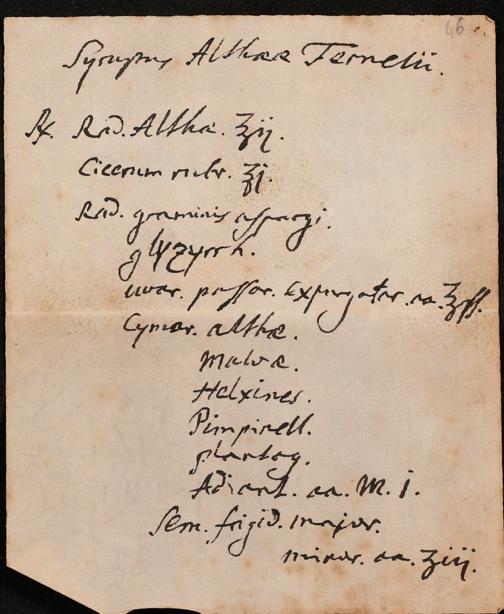 46
Syrupus Altheæ Fernelii.
℞. Rad. Altheæ. ℥ij.
Cicerum rubr. ℥j.
Rad. graminis aſpargi.
glyzyrrh.
uvar. paſſar. Expurgatar. aa. ℥ſſ.
Cymar. altheæ.
Malvæ.
Helxines.
Pimpinell.
plantag.
Adiant. aa. M. j.
Sem. frigid. major.
minor. aa. ʒiij.